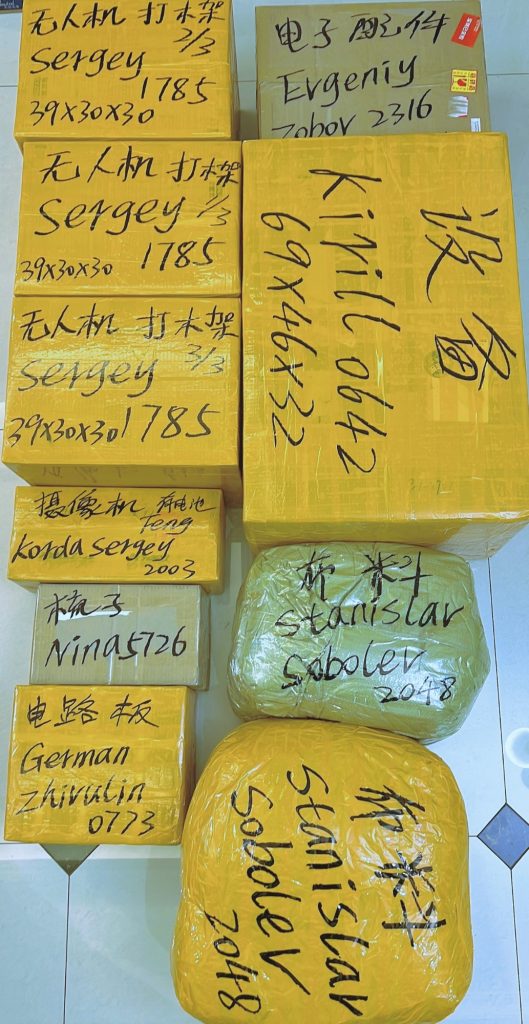 无人机 打木架
2/3
Sergey
1785
39X30X30
电子 配件
Evgeniy
Zobov 2316
无人机 打木架
Sergey 1/3
39X30X30 1785
设备
Kirill 0642
69X46X32
无人机 打木架
3/3
Sergey
39X30X30 1785
摄像机 有电池
Feng
Korda Sergey
2003
梳子
Nina5726
布料
Stanislav
Sobolev
2048
电路板
German
Zhivulin
0773
布料
Stanislav
Sobolev
2048